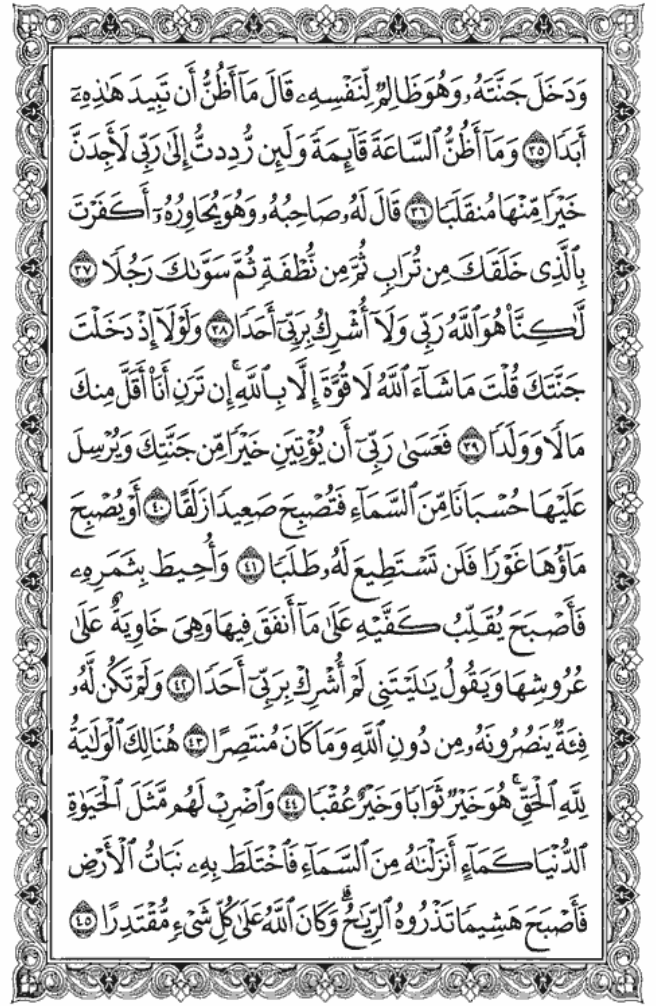 وَدَخَلَ جَنَّتَهُۥ وَهُوَ ظَالِمٌ لِّنَفْسِهِۦ قَالَ مَآ أَظُنُّ أَن تَبِيدَ هَٰذِهِۦٓ
أَبَدًا ٣٥ وَمَآ أَظُنُّ ٱلسَّاعَةَ قَآئِمَةً وَلَئِن رُّدِدتُّ إِلَىٰ رَبِّى لَأَجِدَنَّ
خَيْرًا مِّنْهَا مُنقَلَبًا ٣٦ قَالَ لَهُۥ صَاحِبُهُۥ وَهُوَ يُحَاوِرُهُۥٓ أَكَفَرْتَ
بِٱلَّذِى خَلَقَكَ مِن تُرَابٍ ثُمَّ مِن نُّطْفَةٍ ثُمَّ سَوَّىٰكَ رَجُلًا ٣٧
لَّٰكِنَّا۠ هُوَ ٱللَّهُ رَبِّى وَلَآ أُشْرِكُ بِرَبِّىٓ أَحَدًا ٣٨ وَلَوْلَآ إِذْ دَخَلْتَ
جَنَّتَكَ قُلْتَ مَا شَآءَ ٱللَّهُ لَا قُوَّةَ إِلَّا بِٱللَّهِ ۚ إِن تَرَنِ أَنَا۠ أَقَلَّ مِنكَ
مَالًا وَوَلَدًا ٣٩ فَعَسَىٰ رَبِّىٓ أَن يُؤْتِيَنِ خَيْرًا مِّن جَنَّتِكَ وَيُرْسِلَ
عَلَيْهَا حُسْبَانًا مِّنَ ٱلسَّمَآءِ فَتُصْبِحَ صَعِيدًا زَلَقًا ٤٠ أَوْ يُصْبِحَ
مَآؤُهَا غَوْرًا فَلَن تَسْتَطِيعَ لَهُۥ طَلَبًا ٤١ وَأُحِيطَ بِثَمَرِهِۦ
فَأَصْبَحَ يُقَلِّبُ كَفَّيْهِ عَلَىٰ مَآ أَنفَقَ فِيهَا وَهِىَ خَاوِيَةٌ عَلَىٰ
عُرُوشِهَا وَيَقُولُ يَٰلَيْتَنِى لَمْ أُشْرِكْ بِرَبِّىٓ أَحَدًا ٤٢ وَلَمْ تَكُن لَّهُۥ
فِئَةٌ يَنصُرُونَهُۥ مِن دُونِ ٱللَّهِ وَمَا كَانَ مُنتَصِرًا ٤٣ هُنَالِكَ ٱلْوَلَٰيَةُ
لِلَّهِ ٱلْحَقِّ ۚ هُوَ خَيْرٌ ثَوَابًا وَخَيْرٌ عُقْبًا ٤٤ وَٱضْرِبْ لَهُم مَّثَلَ ٱلْحَيَوٰةِ
ٱلدُّنْيَا كَمَآءٍ أَنزَلْنَٰهُ مِنَ ٱلسَّمَآءِ فَٱخْتَلَطَ بِهِۦ نَبَاتُ ٱلْأَرْضِ
فَأَصْبَحَ هَشِيمًا تَذْرُوهُ ٱلرِّيَٰحُ ۗ وَكَانَ ٱللَّهُ عَلَىٰ كُلِّ شَىْءٍ مُّقْتَدِرًا ٤٥